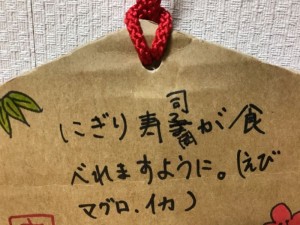 にぎり寿司が食
べれますように。(えび
マグロ.イカ)